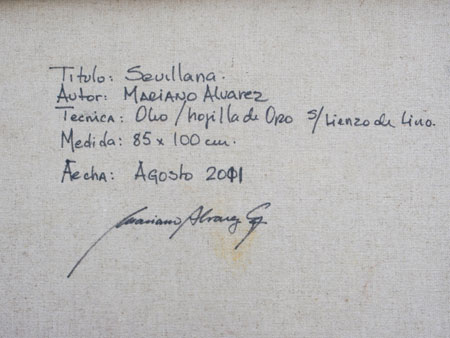 Titulo: Sevillana.
Autor: Mariano Alvarez
Tecnica: Olio/hojilla de Oro s/Lienzo de Lino.
Medida: 85 x 100 cm.
Fecha: Agosto 2011
Mariano Alvarez